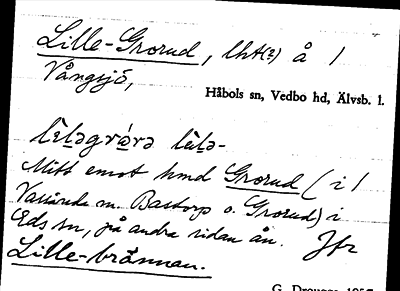 Lille-Grorud, lht(?) å /
Vångsjö,
Håbols sn, Vedbo hd, Älvsb. l.
lìləgrárə lìlə-
Mitt emot hmd Grorud (i /
m. Bastorp o. Grorud) i
Eds sn, på andra sidan ån. Jfr
Lille-brännan.